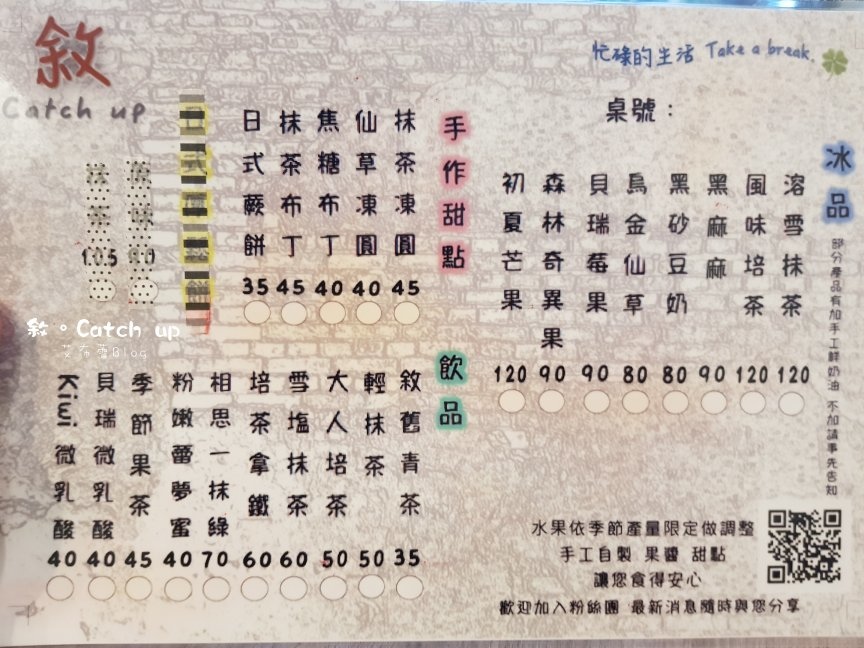 敘
Catch up
忙碌的生活 Take a break
桌號：
冰品
部分產品有加手工鮮奶油 不加請事先告知
溶雪抹茶 120
風味培茶 120
黑麻麻 90
黑砂豆奶 80
烏金仙草 80
貝瑞莓果 90
森林奇異果 90
初夏芒果 120
手作甜點
抹茶凍圓 45
仙草凍圓 40
焦糖布丁 40
抹茶布丁 45
日式蕨餅 35
日式
餅
原味 90
抹茶 105
飲品
敘舊青茶 35
輕抹茶 50
大人培茶 50
雪塩抹茶 60
培茶拿鐵 60
相思一抹綠 70
粉嫩蕾夢蜜 40
季節果茶 45
貝瑞微乳酸 40
Kiwi微乳酸 40
敘。Catch up
艾布蕾Blog
水果依季節產量限定做調整
手工自製 果醬 甜點
讓您食得安心
歡迎加入粉絲團 最新消息隨時與您分享